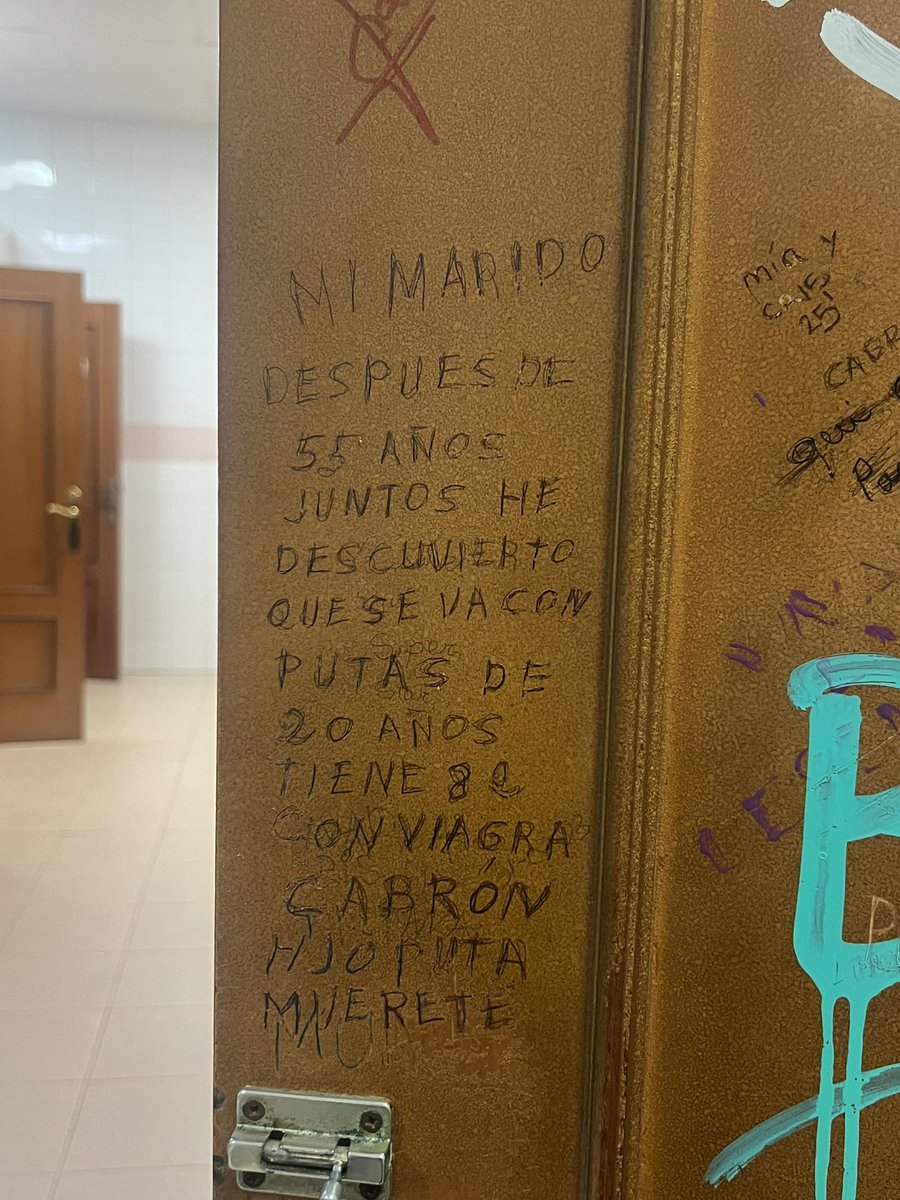 MI MARIDO
DESPUES DE
55 AÑOS
JUNTOS HE
DESCUVIERTO
QUE SE VA CON
PUTAS DE
20 AÑOS
TIENE 82
CON VIAGRA
CABRÓN
HJO PUTA
MUERETE
mía y
25